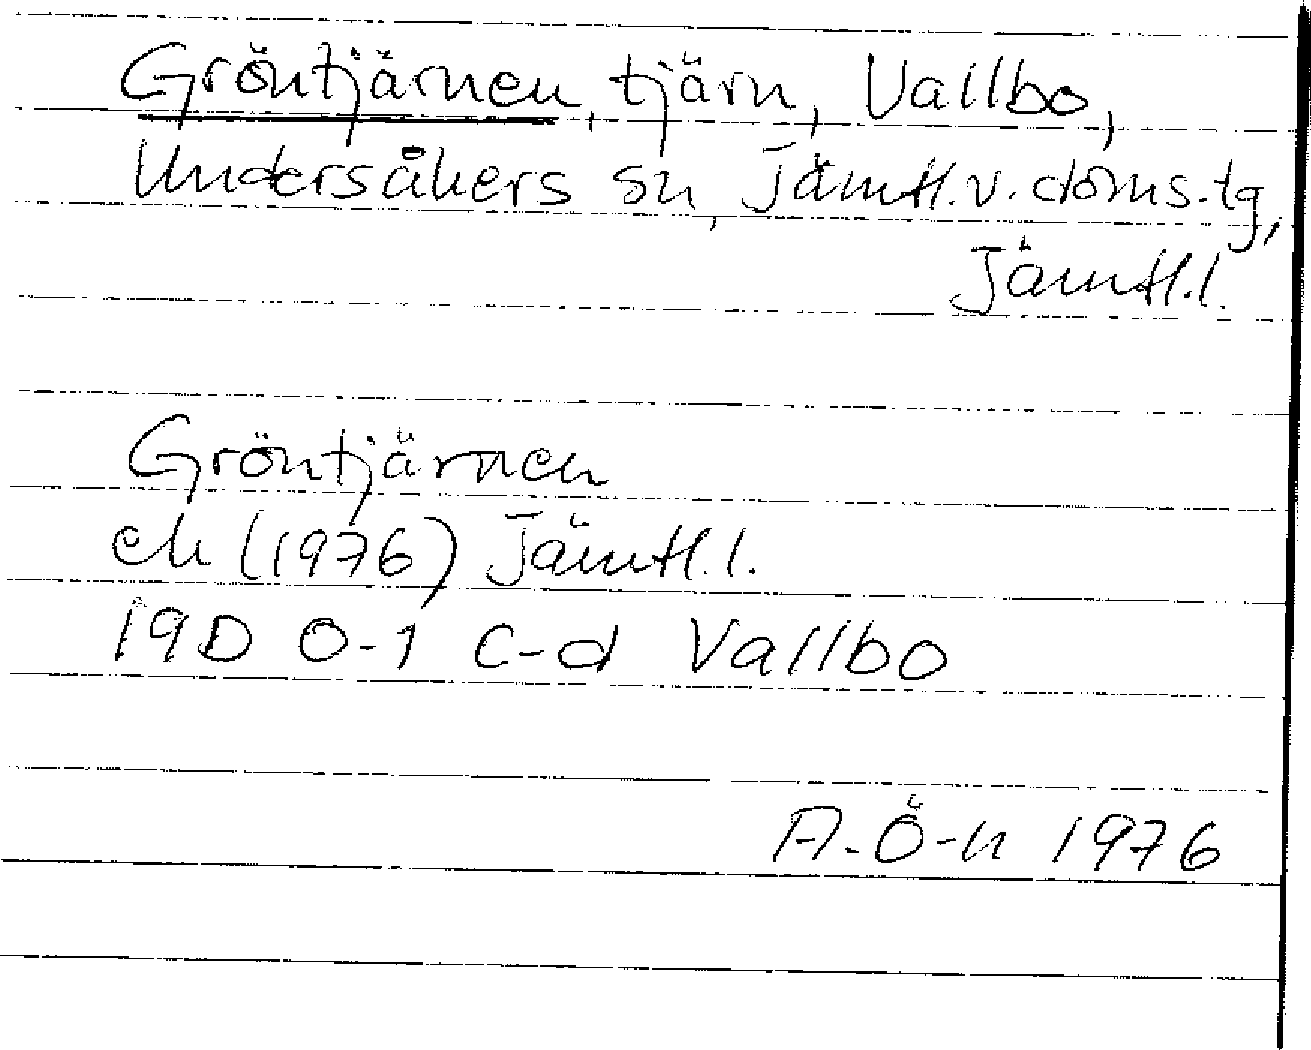 Gröntjärnen, tjärn, Vallbo,
Undersåkers sn, Jämtl.v.doms.tg,
Jämtl.l.
Gröntjärnen
ek (1976) Jämtl.l.
19D 0-1 c-d Vallbo
A.Ö-n 1976